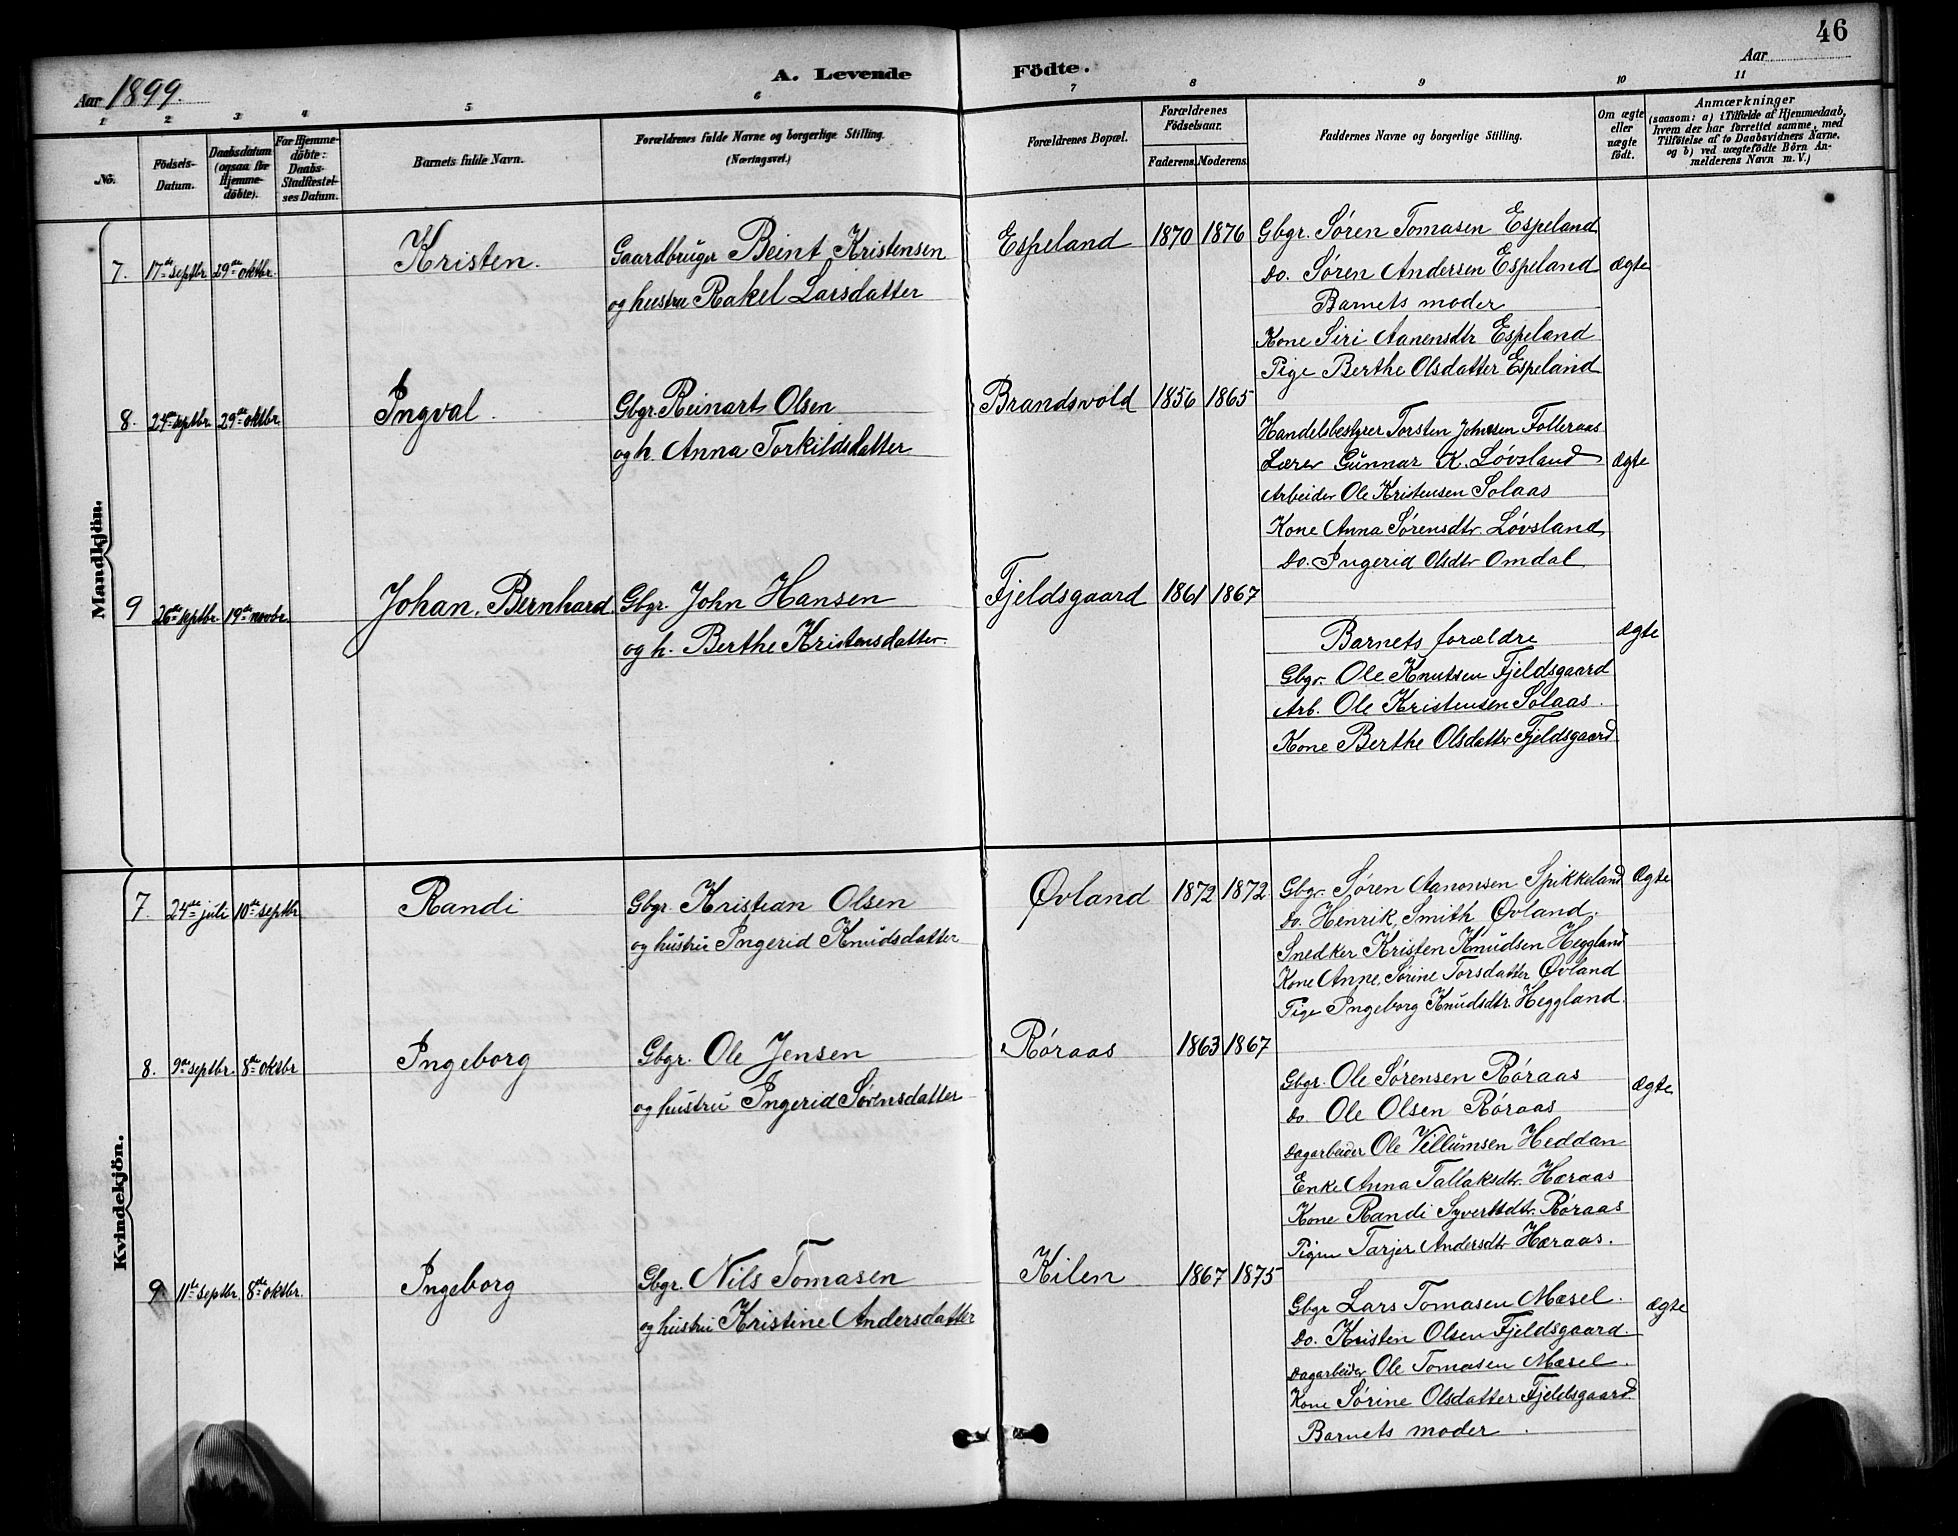 46
Aar 1899.
A. Levende Födte.
Aar
1 2 3 4 5 6 7 8 9 10 11
No.
Födsels-Datum.
Daabsdatum (ogsaa for Hjemme-döbte).
For Hjemme-döbte: Daabs-Stadfæstel-ses Datum.
Barnets fulde Navn.
Forældrenes fulde Navne og borgerlige Stilling. (Næringsvei.)
Forældrenes Bopæl.
Forældrenes Födselsaar.
Faderens. Moderens.
Faddernes Navne og borgerlige Stilling.
Om ægte eller uægte födt.
Anmærkninger
(saasom: a) i Tilfælde af Hjemmedaab, hvem der har forrettet samme, med Tilföielse af to Daabsvidners Navne, og b) ved uægtefödte Börn An-melderens Navn m. V.)
Mandkjön.
7. 17de septbr 29de oktbr. Kristen. Gaardbruger Beint Kristensen
og hustru Rakel Larsdatter
Espeland 1870 1876
Gbgr. Søren Tomasen Espeland
Do. Søren Andersen Espeland ægte
Barnets moder
Kone Siri Aanensdtr Espeland
Pige Berthe Olsdatter Espeland
8. 24de septbr. 29de oktbr. Ingval. Gbgr. Reinart Olsen
og h. Anna Torkildsdatter
Brandsvold 1856 1865
Handelsbestyrer Torsten Johnsen Folleraas
Lærer Gunnar K. Løvsland ægte
Arbeider Ole Kristensen Solaas
Kone Anna Sørensdtr. Løvsland
Do. Ingerid Olsdtr Omdal
9 26de septbr. 19de novbr. Johan Bernhard. Gbgr. John Hansen
og h. Berthe Kristensdatter
Fjeldsgaard 1861 1867
Barnets forældre ægte
Gbgr. Ole Knutsen Fjeldsgaard
Arb. Ole Kristensen Solaas.
Kone Berthe Olsdatter Fjeldsgaard.
Kvindekjön.
7. 24de juli 10de septbr Randi Gbgr. Kristian Olsen
og hustru Ingerid Knudsdatter
Øvland 1872 1872
Gbgr. Søren Aanonsen Spikkeland Ægte
Do. Henrik Smith Øvland.
Snedker Kristen Knudsen Heggland
Kone Anne Sørine Torsdatter Øvland
Pige Ingeborg Knudsdtr. Heggland.
8. 9de septbr. 8de oktbr Ingeborg Gbgr. Ole Jensen
og hustru Ingerid Sørensdatter
Røraas 1863 1867
Gbgr. Ole Sørensen Røraas ægte
Do Ole Olsen Røraas
Dagarbeider Ole Villumsen Heddan
Enke Anna Tallaksdtr. Høraas
Kone Randi Syvertsdtr. Røraas
Pigen Tarjer Andersdtr Høraas.
9. 11te septbr. 8de oktbr. Ingeborg Gbgr. Nils Tomasen
og hustru Kristine Andersdatter
Kilen 1867 1875
Gbgr Lars Tomasen Mæsel. ægte
Do. Kristen Olsen Fjeldsgaard.
Dagarbeider Ole Tomasen Mæsel.
Kone Sørine Olsdatter Fjeldsgaard.
Barnets moder.